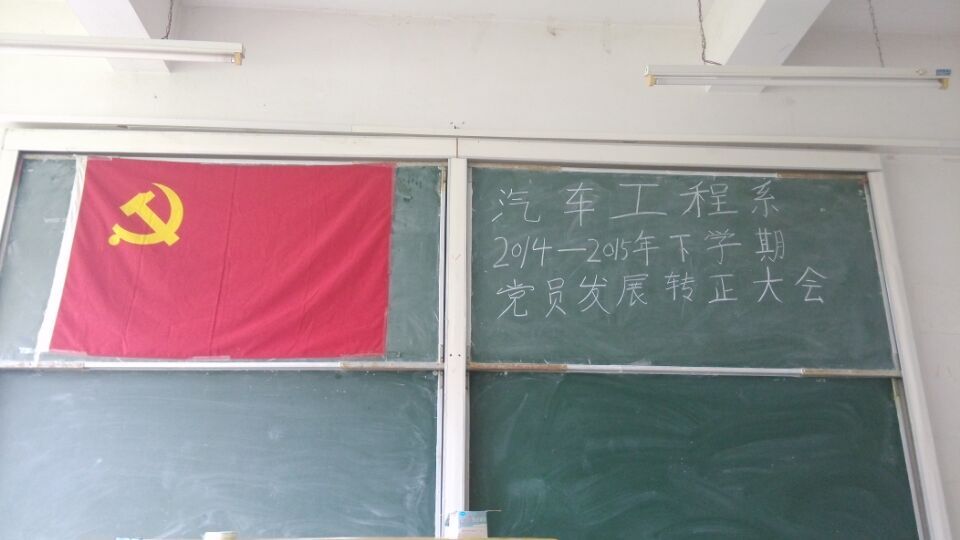 汽车工程系
2014—2015年下学期
党员发展转正大会